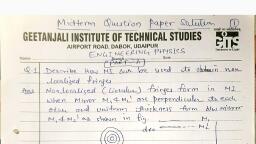 Midterm Question Paper Solution 1
GEETANJALI INSTITUTE OF TECHNICAL STUDIES
AIRPORT ROAD, DABOK, UDAIPUR
ENGINEERING PHYSICS
PART - A
Q.1 Describe how MI can be used to obtain non
localized fringes
Ans Nonlocalized (Circular) fringes form in MI
when Mirror M1 & M2' are perpendicular to each
other and uniform thickness form b/w mirror
M1 & M2' as shown in fig M1